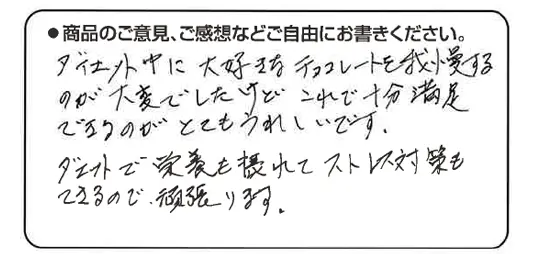 ●商品のご意見、ご感想などご自由にお書きください。
ダイエット中に大好きなチョコレートを我慢する
のが大変でしたけどこれで十分満足
できるのがとてもうれしいです。
ダエットで栄養も摂れてストレス対策も
できるので、頑張ります。